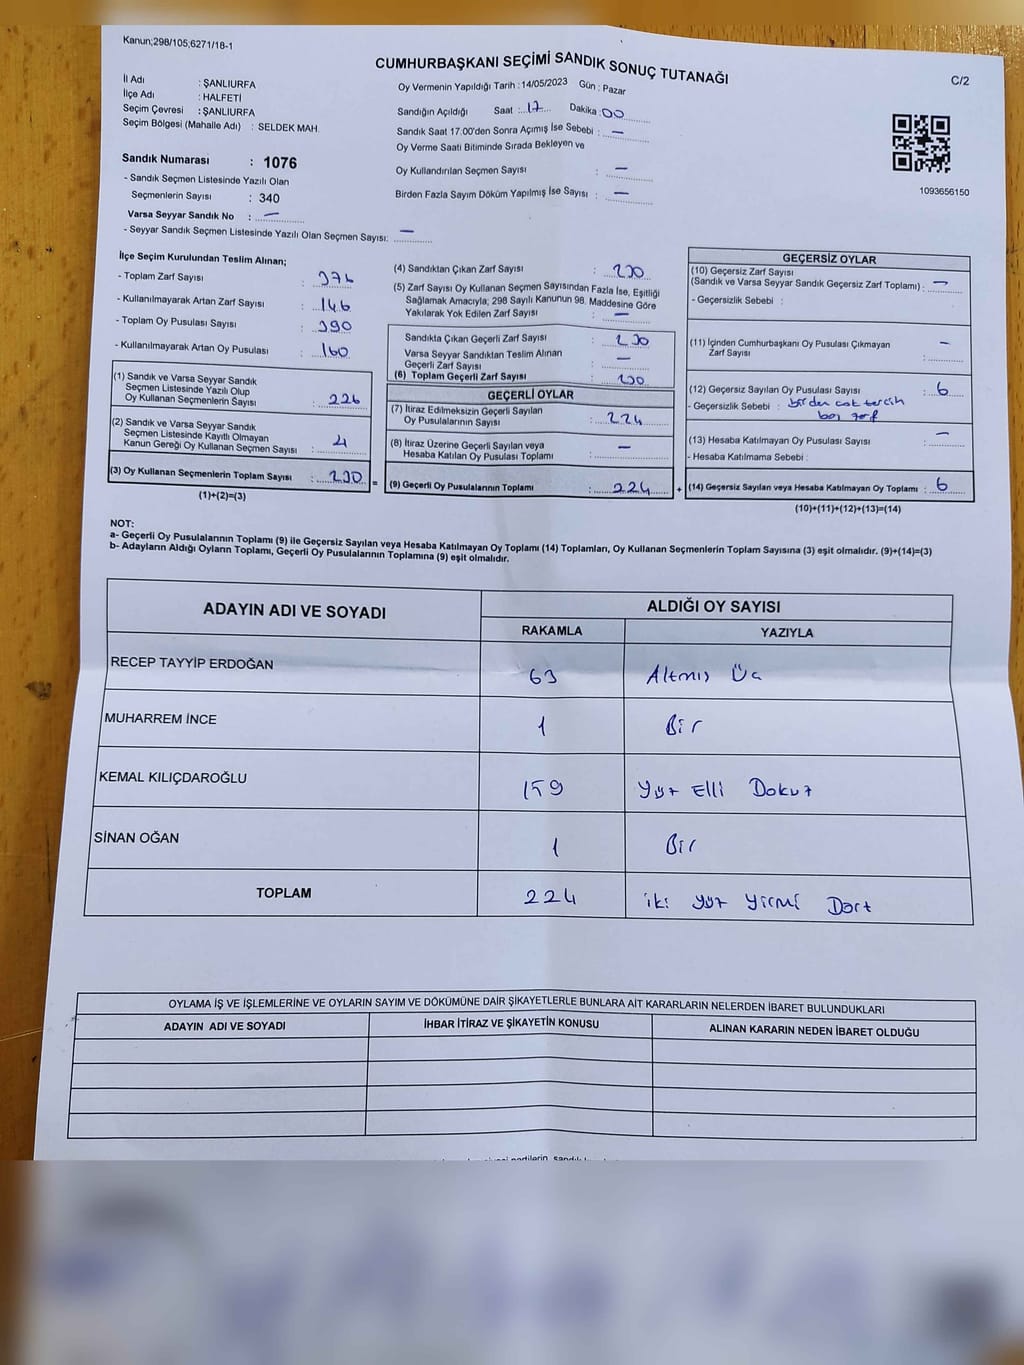 Kanun;298/105,6271/18-1
CUMHURBAŞKANI SEÇİMİ SANDIK SONUÇ TUTANAĞI
C/2
İl Adı : ŞANLIURFA
İlçe Adı : HALFETİ
Seçim Çevresi : ŞANLIURFA
Seçim Bölgesi (Mahalle Adı) : SELDEK MAH.
Sandık Numarası : 1076
- Sandık Seçmen Listesinde Yazılı Olan
Seçmenlerin Sayısı : 340
Varsa Seyyar Sandık No : —
- Seyyar Sandık Seçmen Listesinde Yazılı Olan Seçmen Sayısı: —
Oy Vermenin Yapıldığı Tarih : 14/05/2023 Gün : Pazar
Sandığın Açıldığı Saat : 17 Dakika : 00
Sandık Saat 17:00'den Sonra Açımış İse Sebebi : —
Oy Verme Saati Bitiminde Sırada Bekleyen ve
Oy Kullandırılan Seçmen Sayısı : —
Birden Fazla Sayım Döküm Yapılmış İse Sayısı : —
1093656150
İlçe Seçim Kurulundan Teslim Alınan;
- Toplam Zarf Sayısı : 376
- Kullanılmayarak Artan Zarf Sayısı : 146
- Toplam Oy Pusulası Sayısı : 390
- Kullanılmayarak Artan Oy Pusulası : 160
(1) Sandık ve Varsa Seyyar Sandık
Seçmen Listesinde Yazılı Olup
Oy Kullanan Seçmenlerin Sayısı : 226
(2) Sandık ve Varsa Seyyar Sandık
Seçmen Listesinde Kayıtlı Olmayan
Kanun Gereği Oy Kullanan Seçmen Sayısı : 4
(3) Oy Kullanan Seçmenlerin Toplam Sayısı : 230 =
(1)+(2)=(3)
(4) Sandıktan Çıkan Zarf Sayısı : 230
(5) Zarf Sayısı Oy Kullanan Seçmen Sayısından Fazla İse, Eşitliği
Sağlamak Amacıyla; 298 Sayılı Kanunun 98. Maddesine Göre
Yakılarak Yok Edilen Zarf Sayısı : —
Sandıkta Çıkan Geçerli Zarf Sayısı : 230
Varsa Seyyar Sandıktan Teslim Alınan
Geçerli Zarf Sayısı : —
(6) Toplam Geçerli Zarf Sayısı : 230
GEÇERLİ OYLAR
(7) İtiraz Edilmeksizin Geçerli Sayılan
Oy Pusulalarının Sayısı : 224
(8) İtiraz Üzerine Geçerli Sayılan veya
Hesaba Katılan Oy Pusulası Toplamı : —
(9) Geçerli Oy Pusulalarının Toplamı : 224 +
GEÇERSİZ OYLAR
(10) Geçersiz Zarf Sayısı
(Sandık ve Varsa Seyyar Sandık Geçersiz Zarf Toplamı) : —
- Geçersizlik Sebebi :
(11) İçinden Cumhurbaşkanı Oy Pusulası Çıkmayan
Zarf Sayısı : —
(12) Geçersiz Sayılan Oy Pusulası Sayısı : 6
- Geçersizlik Sebebi : birden çok tercih
boş zarf
(13) Hesaba Katılmayan Oy Pusulası Sayısı : —
- Hesaba Katılmama Sebebi :
(14) Geçersiz Sayılan veya Hesaba Katılmayan Oy Toplamı : 6
(10)+(11)+(12)+(13)=(14)
NOT:
a- Geçerli Oy Pusulalarının Toplamı (9) ile Geçersiz Sayılan veya Hesaba Katılmayan Oy Toplamı (14) Toplamları, Oy Kullanan Seçmenlerin Toplam Sayısına (3) eşit olmalıdır. (9)+(14)=(3)
b- Adayların Aldığı Oyların Toplamı, Geçerli Oy Pusulalarının Toplamına (9) eşit olmalıdır.
ADAYIN ADI VE SOYADI ALDIĞI OY SAYISI
RAKAMLA YAZIYLA
RECEP TAYYİP ERDOĞAN 63 Altmış Üç
MUHARREM İNCE 1 Bir
KEMAL KILIÇDAROĞLU 159 Yüz Elli Dokuz
SİNAN OĞAN 1 Bir
TOPLAM 224 iki yüz yirmi Dört
OYLAMA İŞ VE İŞLEMLERİNE VE OYLARIN SAYIM VE DÖKÜMÜNE DAİR ŞİKAYETLERLE BUNLARA AİT KARARLARIN NELERDEN İBARET BULUNDUKLARI
ADAYIN ADI VE SOYADI İHBAR İTİRAZ VE ŞİKAYETİN KONUSU ALINAN KARARIN NEDEN İBARET OLDUĞU